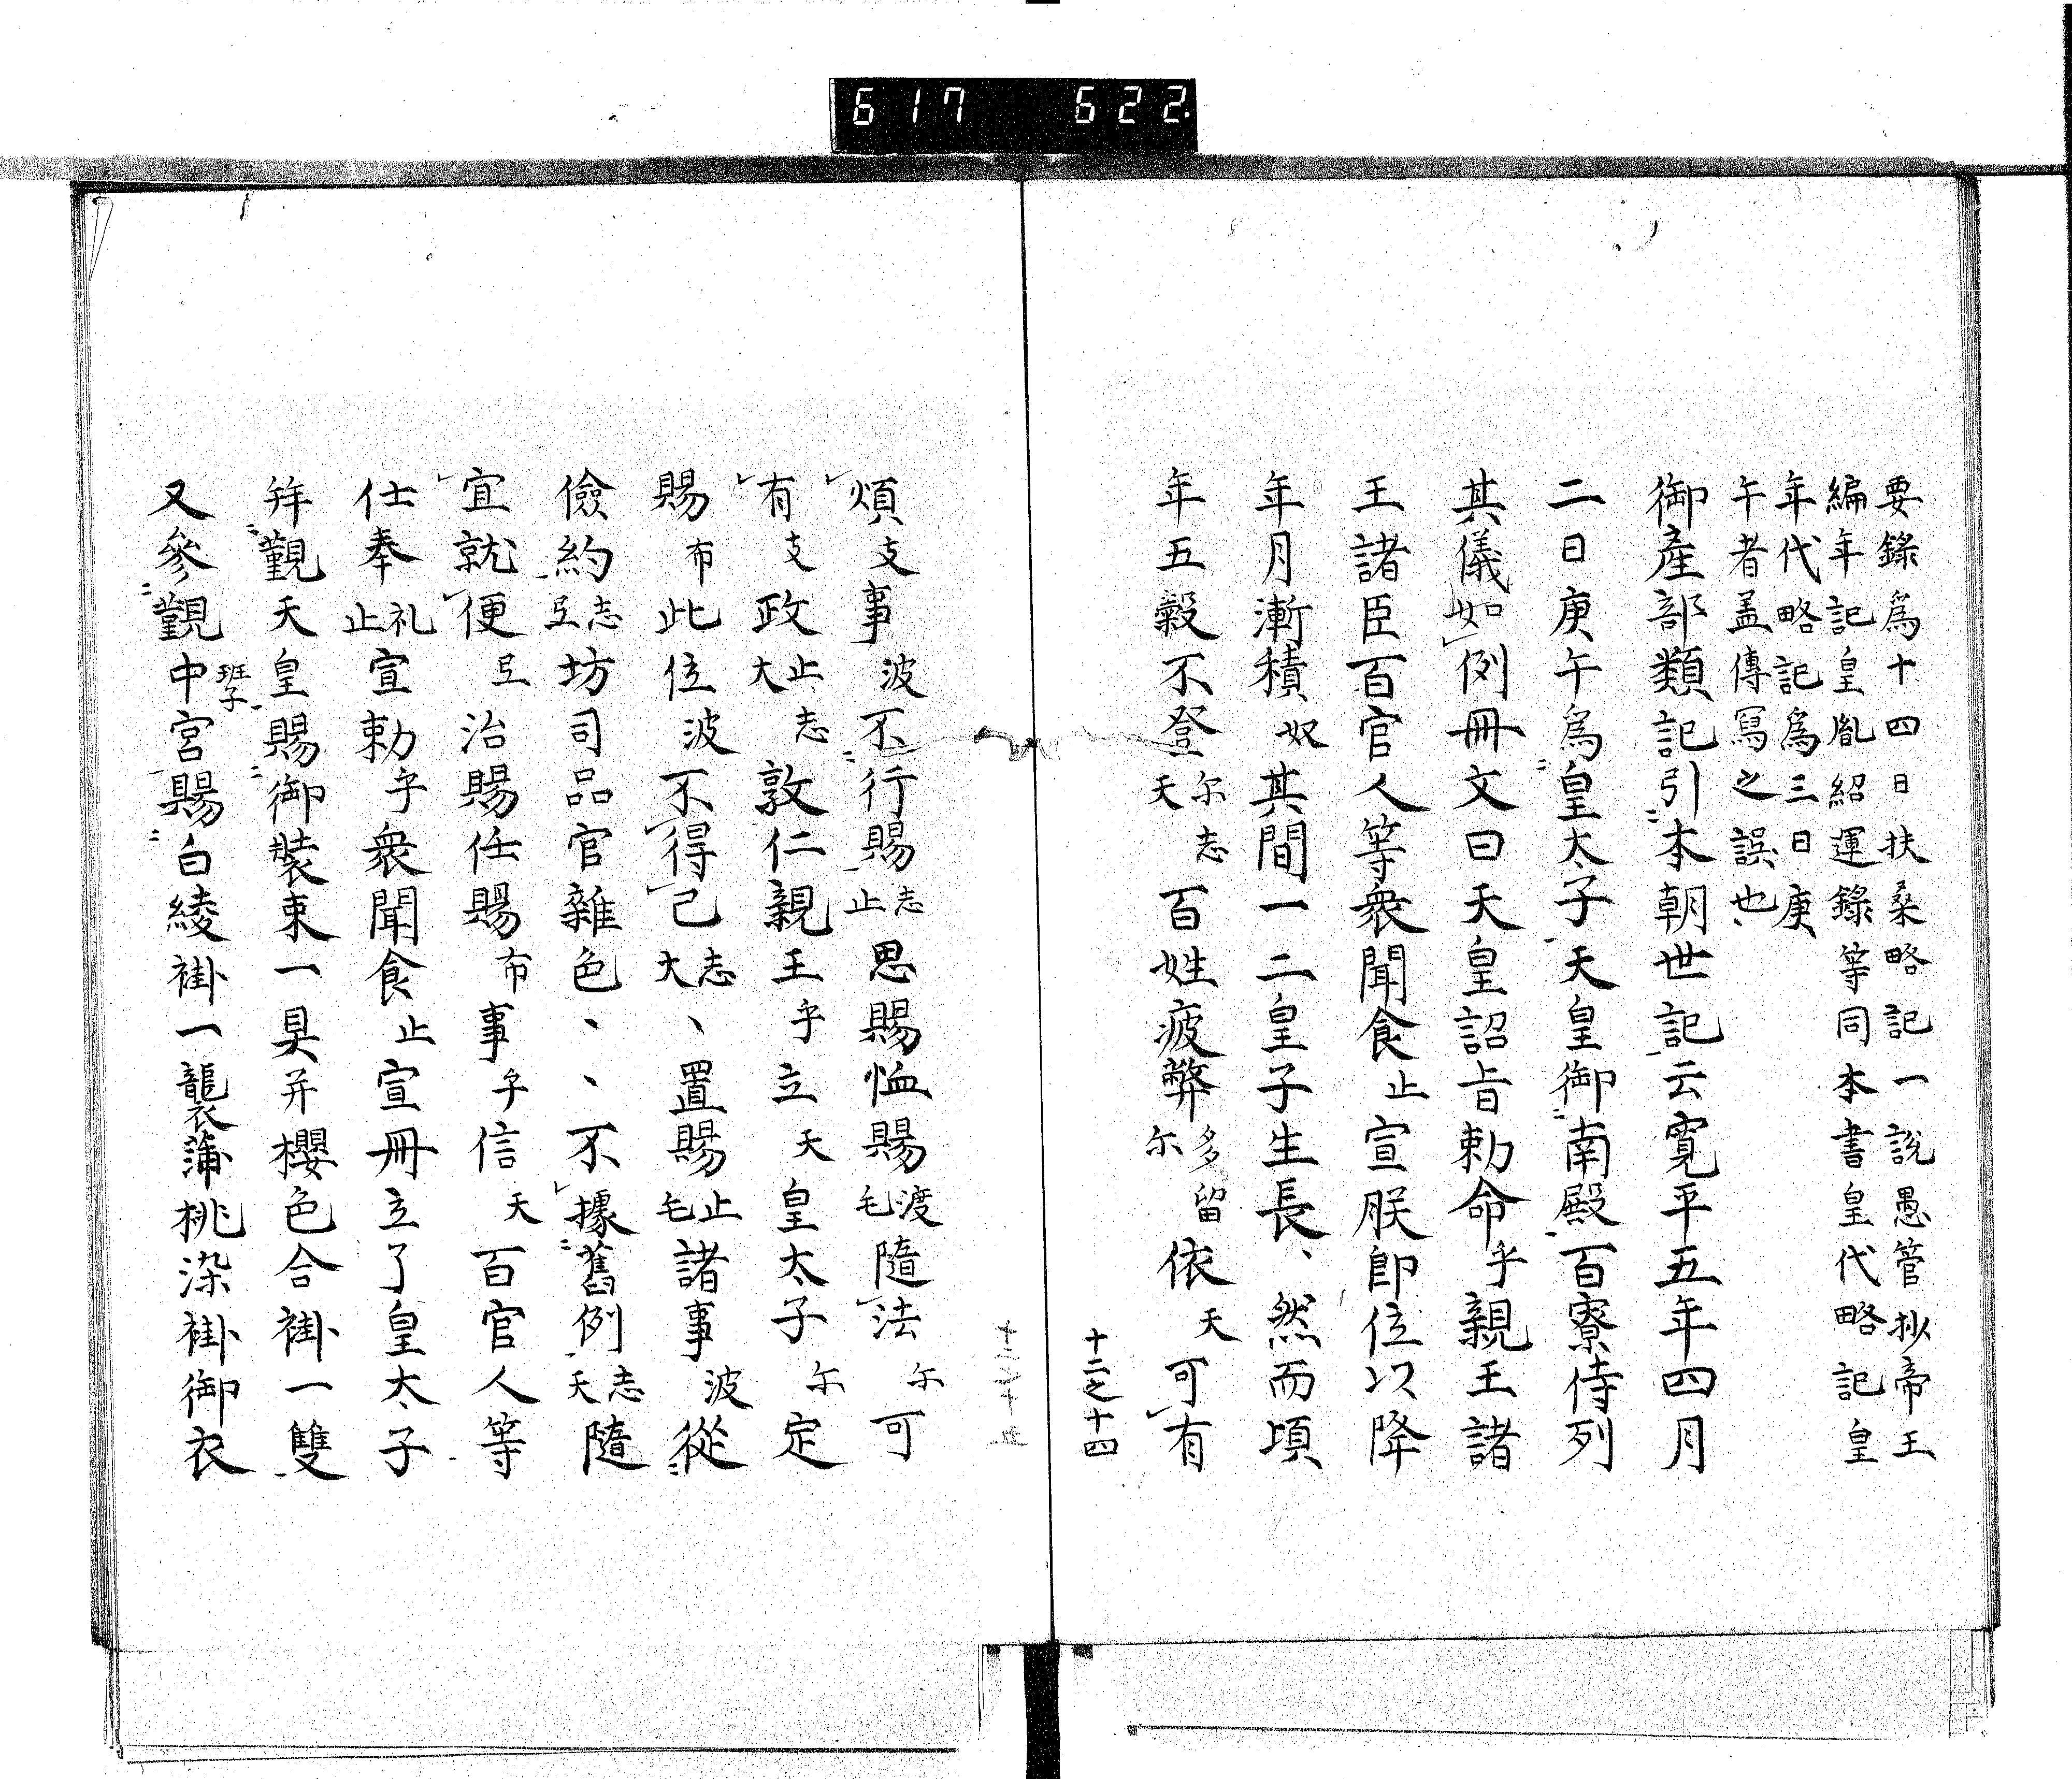 617 622
要錄爲十四日扶桑略記一說愚管抄帝王
編年記皇胤紹運錄等同本書皇代略記皇
年代略記爲三日庚
午者盖傳寫之誤也
御產部類記引本朝世記云寬平五年四月
二日庚午爲皇太子天皇御南殿百寮侍列
其儀如例冊文曰天皇詔旨勅命乎親王諸
王諸臣百官人等衆聞食止宣朕卽位以降
年月漸積奴其間一二皇子生長、然而頃
年五穀不登尓志天百姓疲弊多留尓依天可有
十二之十四
煩支事波不行賜志止思賜恤賜渡毛隨法尓可
有支政止志大敦仁親王乎立天皇太子尓定
賜布此位波不得已志大、置賜止毛諸事波從
儉約志弖坊司品官雜色、、不據舊例志天隨
宜就便弖治賜任賜布事乎信天百官人等
仕奉礼止宣勅乎衆聞食止宣冊立了皇太子
拜覲天皇賜御裝束一具并櫻色合褂一雙
又參覲中宮班子賜白綾褂一襲蒲桃染褂御衣